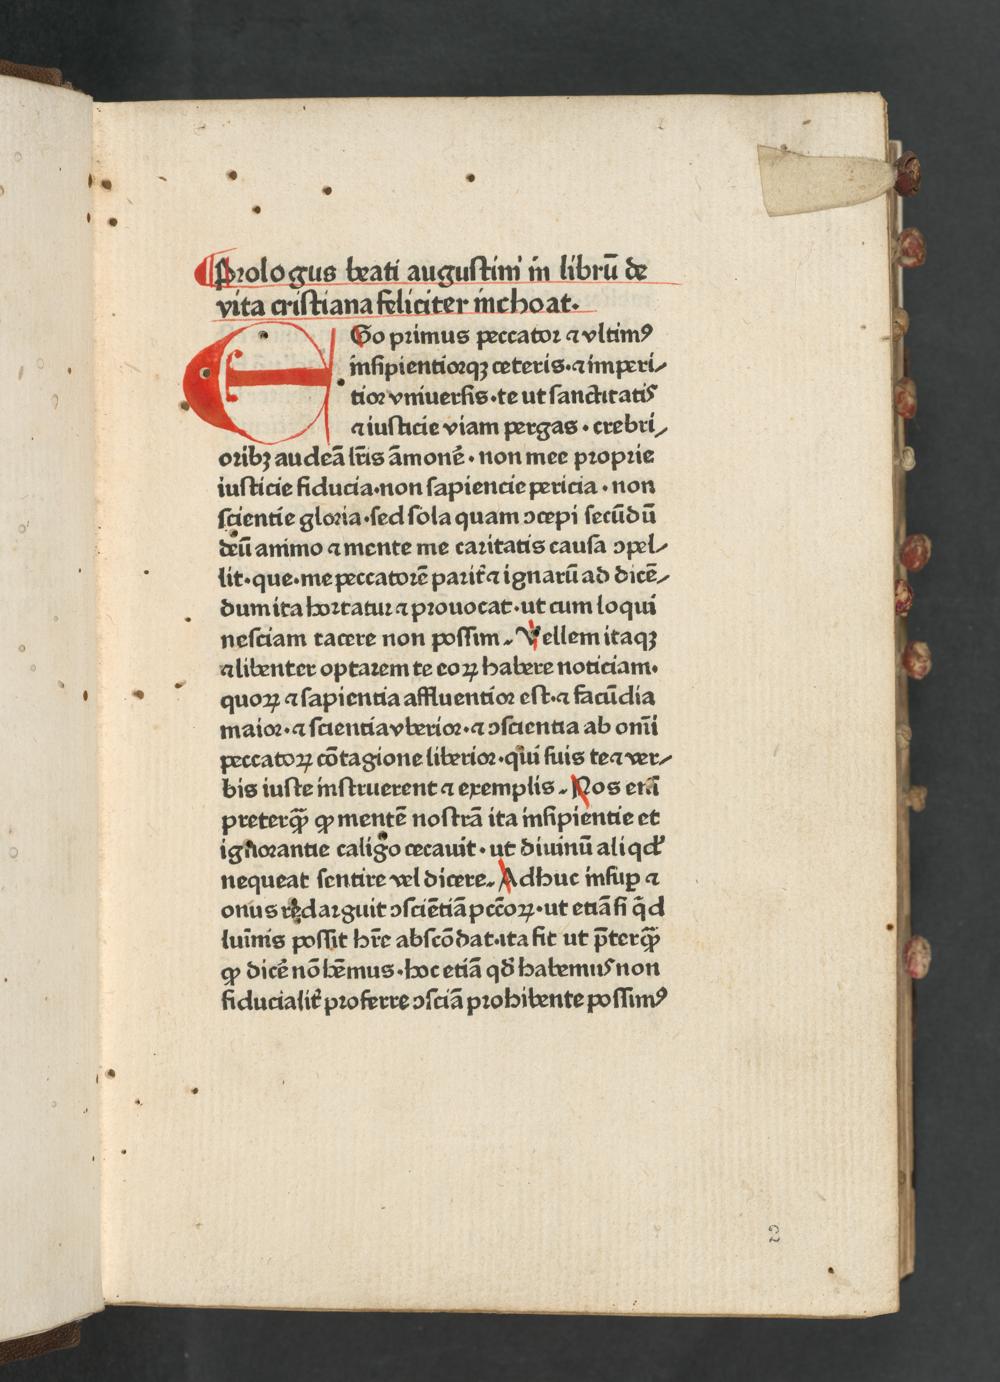 Prologus beati augustini in librū de
vita cristiana feliciter inchoat.
EGo primus peccator ⁊ vltimꝯ
insipientiorqꝫ ceteris·⁊ imperi/
tior vniuersis·te ut sanctitatis
⁊ iusticie viam pergas·crebri/
oribꝫ audeā lr̄is āmonē·non mee proprie
iusticie fiducia·non sapiencie pericia·non
scientie gloria·sed sola quam ↄcepi secūdū
deū animo ⁊ mente me caritatis causa ↄpel/
lit·que·me peccatorē parit̄ ⁊ ignarū ad dicē/
dum ita hortatur ⁊ prouocat·ut cum loqui
nesciam tacere non possim. Vellem itaqꝫ
⁊ libenter optarem te eoꝝ habere noticiam·
quoꝝ ⁊ sapientia affluentior est·⁊ facūdia
maior·⁊ scientia vberior·⁊ ↄscientia ab om̄i
peccatoꝝ cōtagione liberior·qui suis te ⁊ ver/
bis iuste instruerent ⁊ exemplis. Nos em̄
preterq̄ꝫ ꝙ mentē nostrā ita insipientie et
ignorantie caligo cecauit·ut diuinū aliqd'
nequeat sentire vel dicere. Adhuc insuꝑ ⁊
onus redarguit ↄsciētiā pctōꝝ·ut etiā si q̄d
lumīs possit hr̄e abscōdat·ita fit ut p̄terq̄ꝫ
ꝙ dicē nō hēmus·hoc etiā qd̄ habemus non
fiducialit̄ proferre ↄsciā prohibente possimꝯ
2